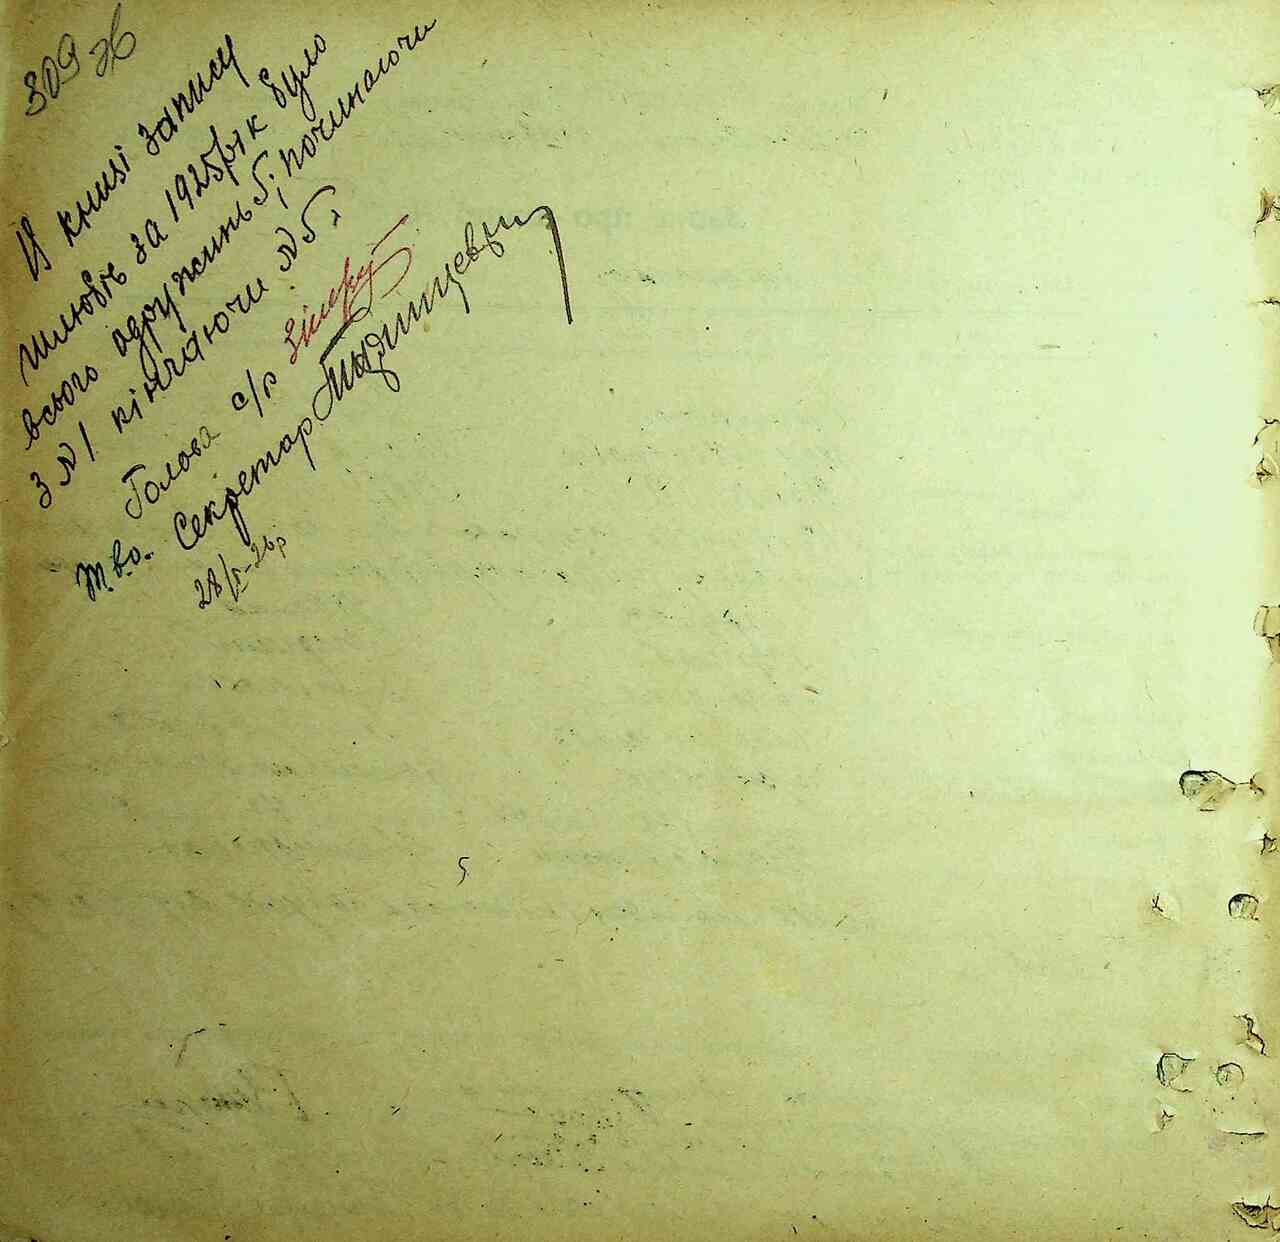 309 зв
Ц книзі запису
шлюбів за 1925 рік було
всього одружинь 5, починаючи
з №1 кінчаючи №5.
Голова с/р
Т.в.о. Секретар
28/I-26р
5